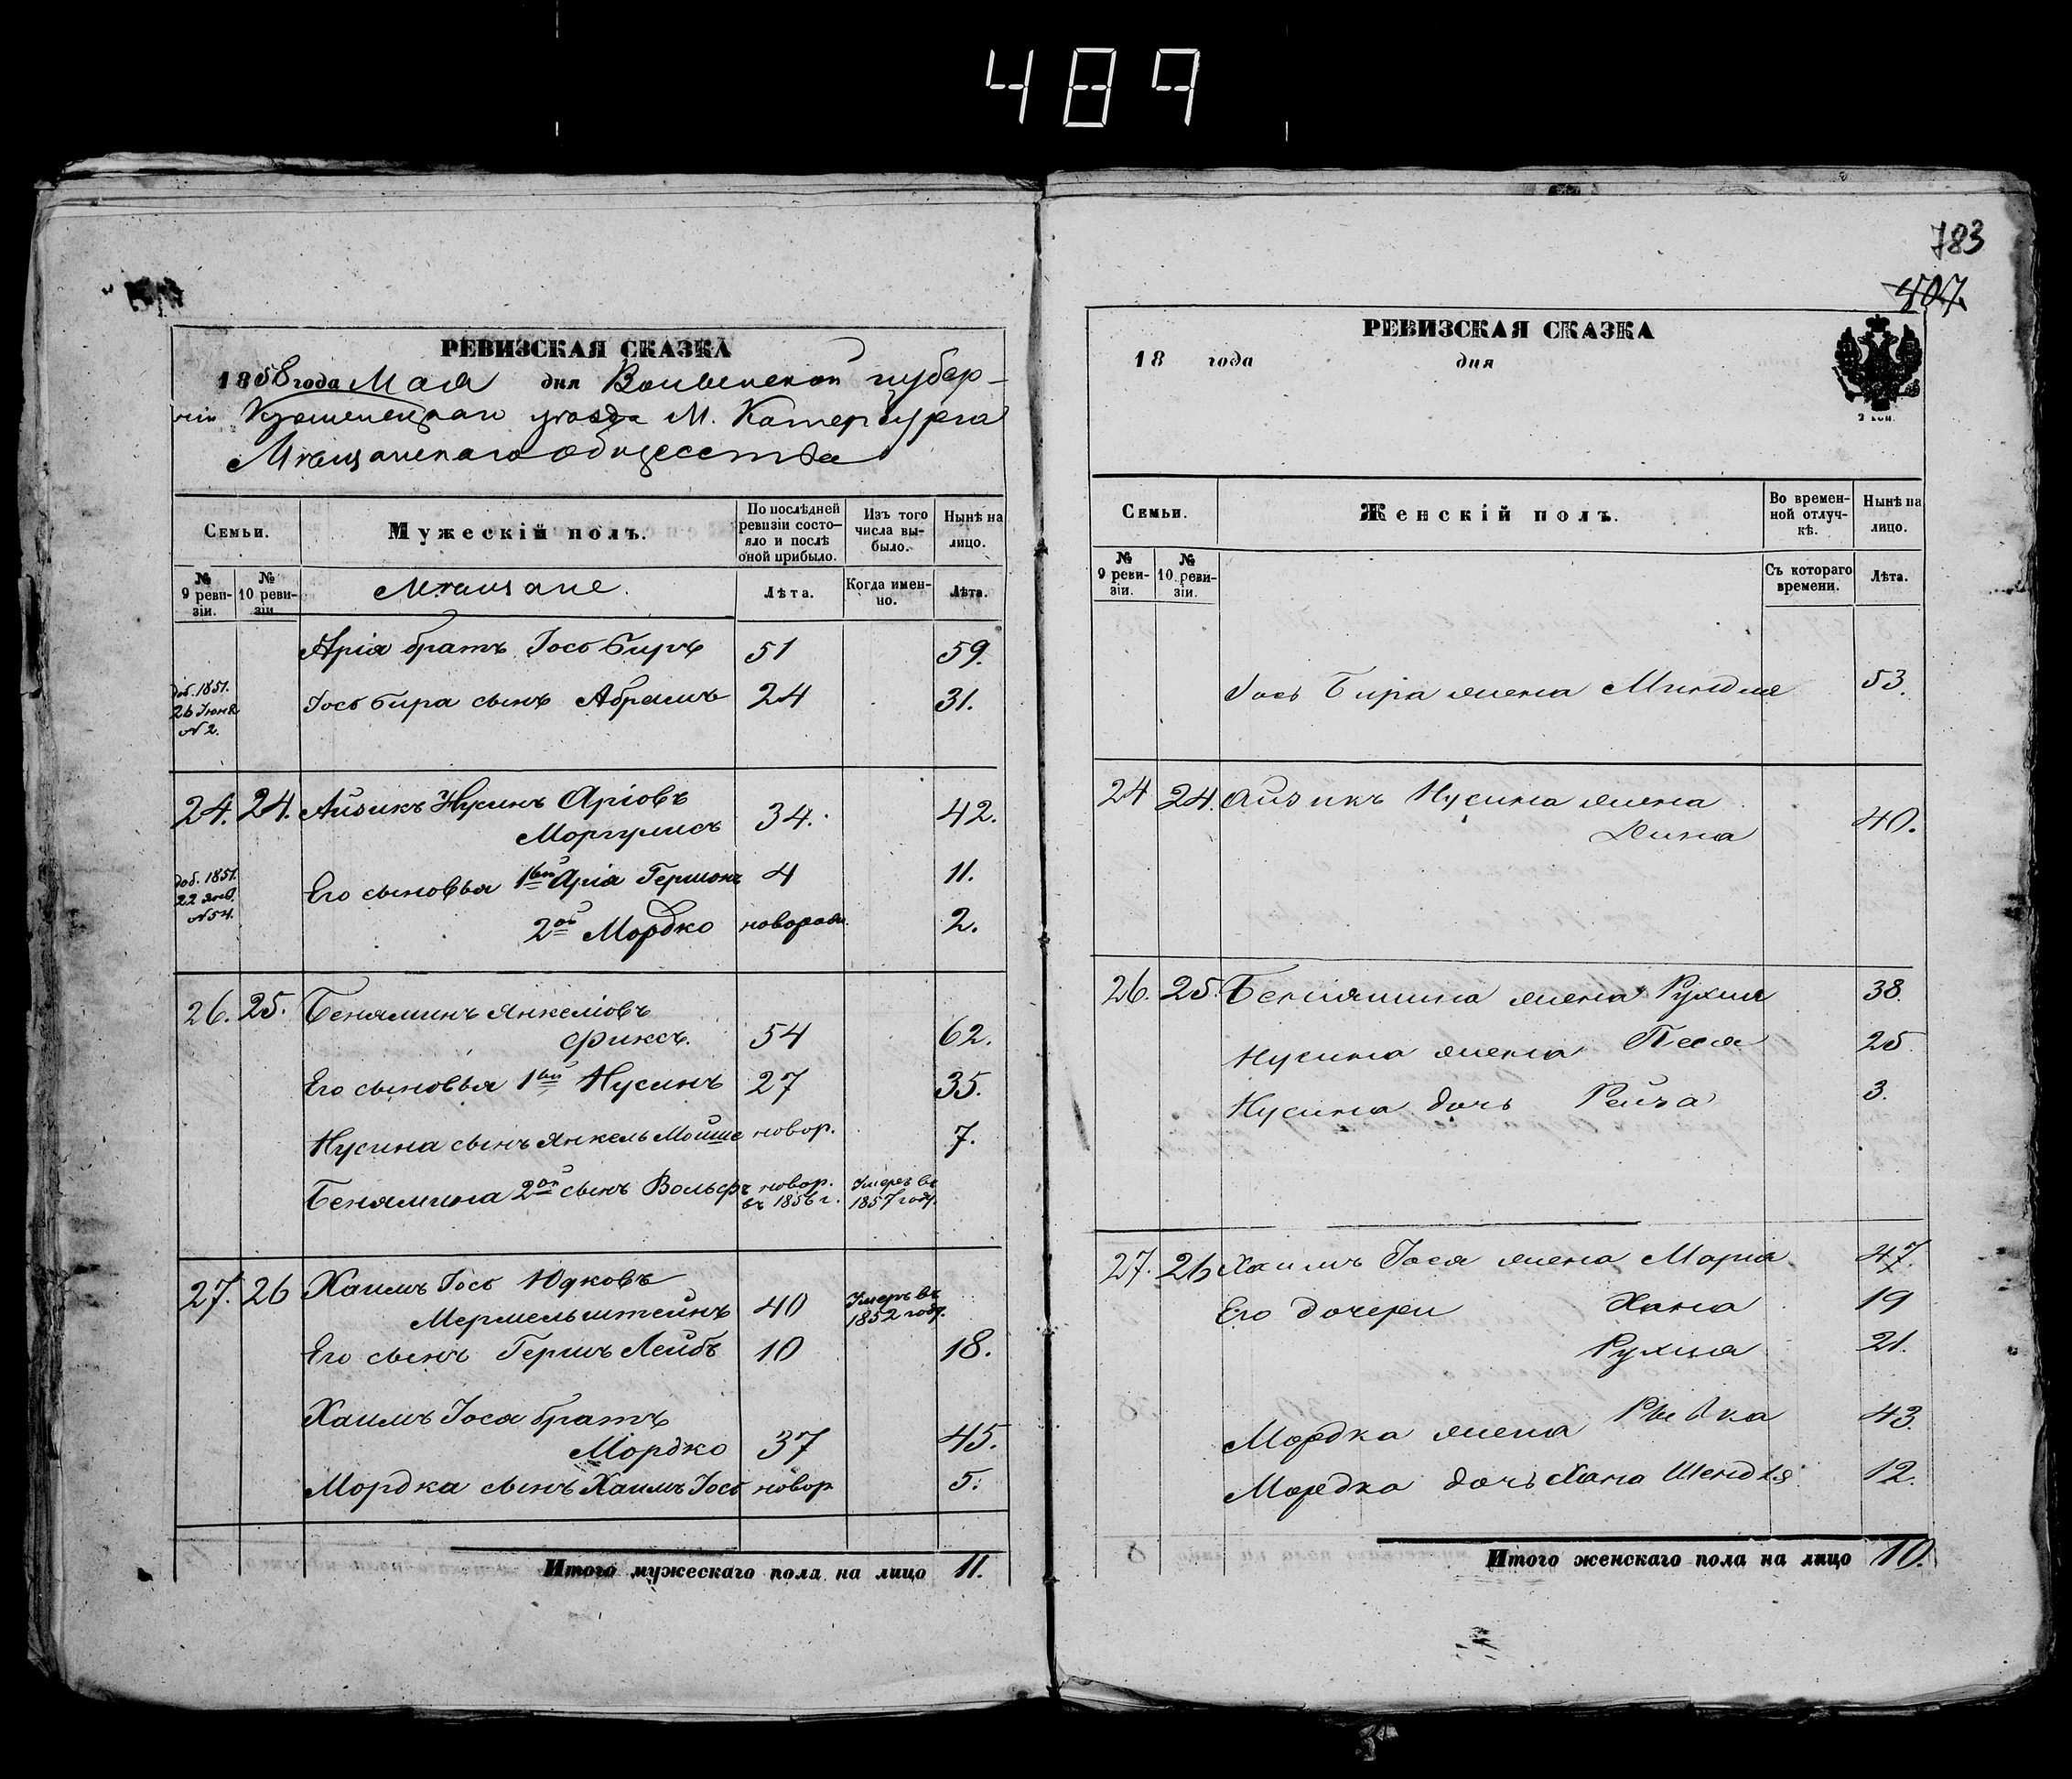 489
783
507.
РЕВИЗСКАЯ СКАЗКА
1858 года Мая дня Волынской губер-
ніи Кременецкаго уѣзда М. Катербурга
Мѣщанскаго общества
Семьи.
Мужескій полъ.
По послѣдней ревизіи состояло и послѣ оной прибыло.
Изъ того числа выбыло.
Нынѣ на лицо.
№ 9 ревизіи.
№ 10 ревизіи.
Мѣщане.
Лѣта.
Когда именно.
Лѣта.
Арія братъ Іось Биръ 51 59.
доб. 1851. 26 Іюня № 2.
Іось Бира сынъ Абрамъ 24 31.
24. 24. Айзикъ Нусинъ Аріовъ
Моргулисъ 34. 42.
доб. 1851. 22 янв. № 54.
Его сыновья 1ый Арія Гершонъ 4 11.
2ой Мордко новорожд. 2.
26. 25. Беняминъ Янкеліовъ
Фиксъ. 54 62.
Его сыновья 1ый Нусинъ 27 35.
Нусина сынъ Янкель Мойше новор. 7.
Бенямина 2ой сынъ Вольфъ новор. въ 1856 г. Умеръ въ 1857 году.
27. 26 Хаимъ Іось Юдковъ
Мермельштейнъ 40 Умеръ въ 1852 году.
Его сынъ Гершъ Лейбъ 10 18.
Хаимъ Іося братъ
Мордко 37 45.
Мордка сынъ Хаимъ Іось новор 5.
Итого мужескаго пола на лицо 11.
РЕВИЗСКАЯ СКАЗКА
18 года дня
Семьи.
Женскій полъ.
Во временной отлучкѣ.
Нынѣ на лицо.
№ 9 ревизіи.
№ 10 ревизіи.
Съ котораго времени.
Лѣта.
Іось Бира жена Миндля 53.
24 24. Айзикъ Нусина жена
Дина 40.
26. 25. Бенямина жена Рухля 38.
Нусина жена Песя 25
Нусина дочь Рейза 3.
27. 26 Хаимъ Іося жена Марія 47.
Его дочери Хана 19
Рухля 21.
Мордка жена Рывка 43.
Мордка дочь Хана Шендля 12.
Итого женскаго пола на лицо 10.